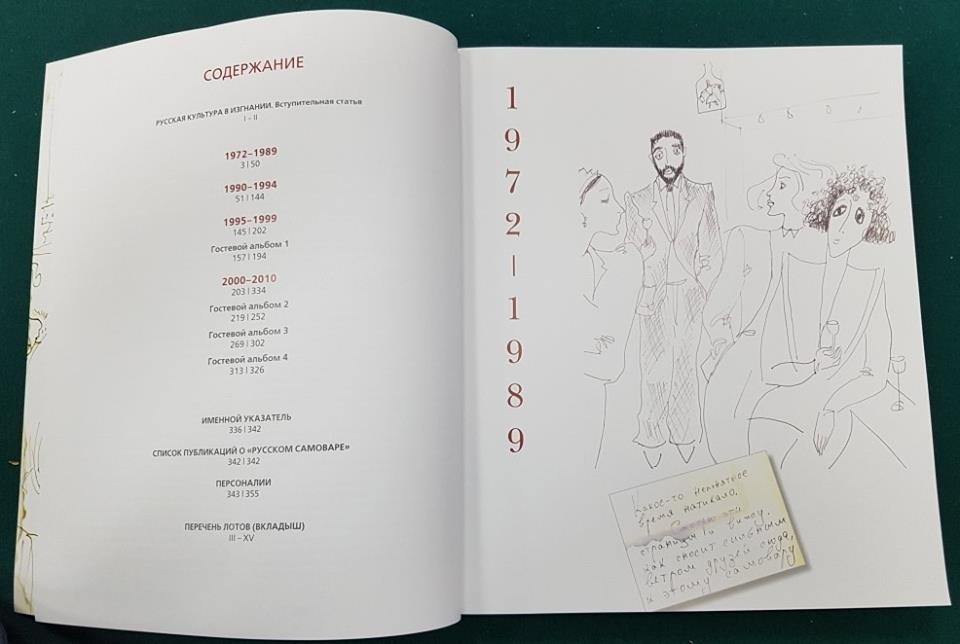 СОДЕРЖАНИЕ
РУССКАЯ КУЛЬТУРА В ИЗГНАНИИ. Вступительная статья
I – II
1972–1989
3 | 50
1990–1994
51 | 144
1995–1999
145 | 202
Гостевой альбом 1
157 | 194
2000–2010
203 | 334
Гостевой альбом 2
219 | 252
Гостевой альбом 3
269 | 302
Гостевой альбом 4
313 | 326
ИМЕННОЙ УКАЗАТЕЛЬ
336 | 342
СПИСОК ПУБЛИКАЦИЙ О «РУССКОМ САМОВАРЕ»
342 | 342
ПЕРСОНАЛИИ
343 | 355
ПЕРЕЧЕНЬ ЛОТОВ (ВКЛАДЫШ)
III – XV
1972|1989
Какое-то непонятное
время натикало.
эти
страницы и вижу,
как сносит сильным
ветром друзей сюда,
к этому самовару